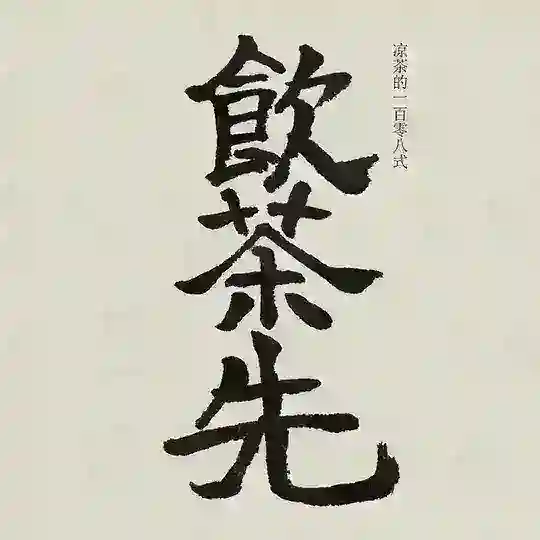 凉茶的一百零八式
飲茶先